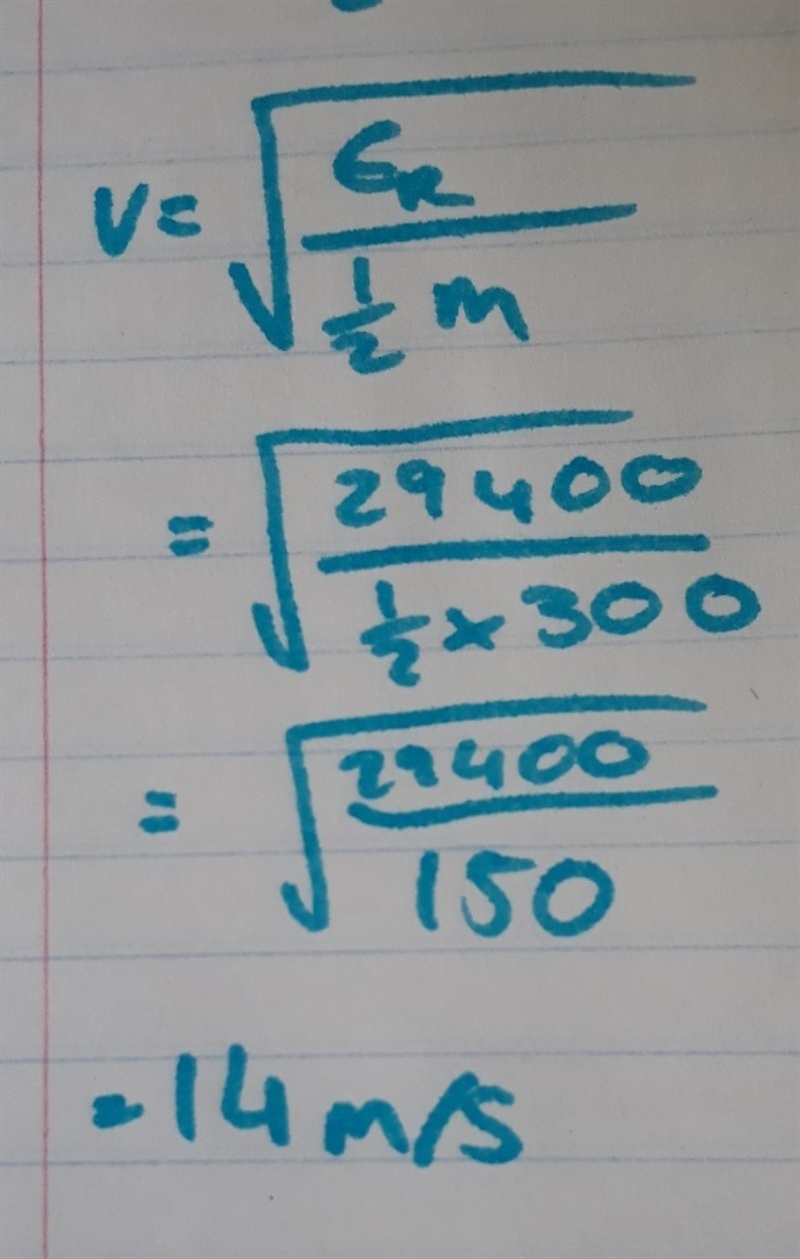 v = √(E_k / ½ m)
= √(29400 / ½ × 300)
= √(29400 / 150)
= 14 m/s